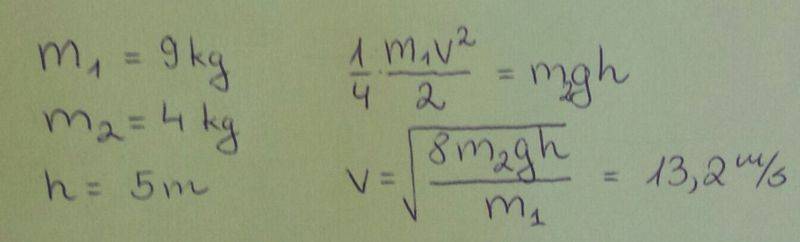 m₁ = 9 kg
m₂ = 4 kg
h = 5 m
1/4 · m₁v²/2 = m₂gh
v = √(8m₂gh/m₁) = 13,2 m/s